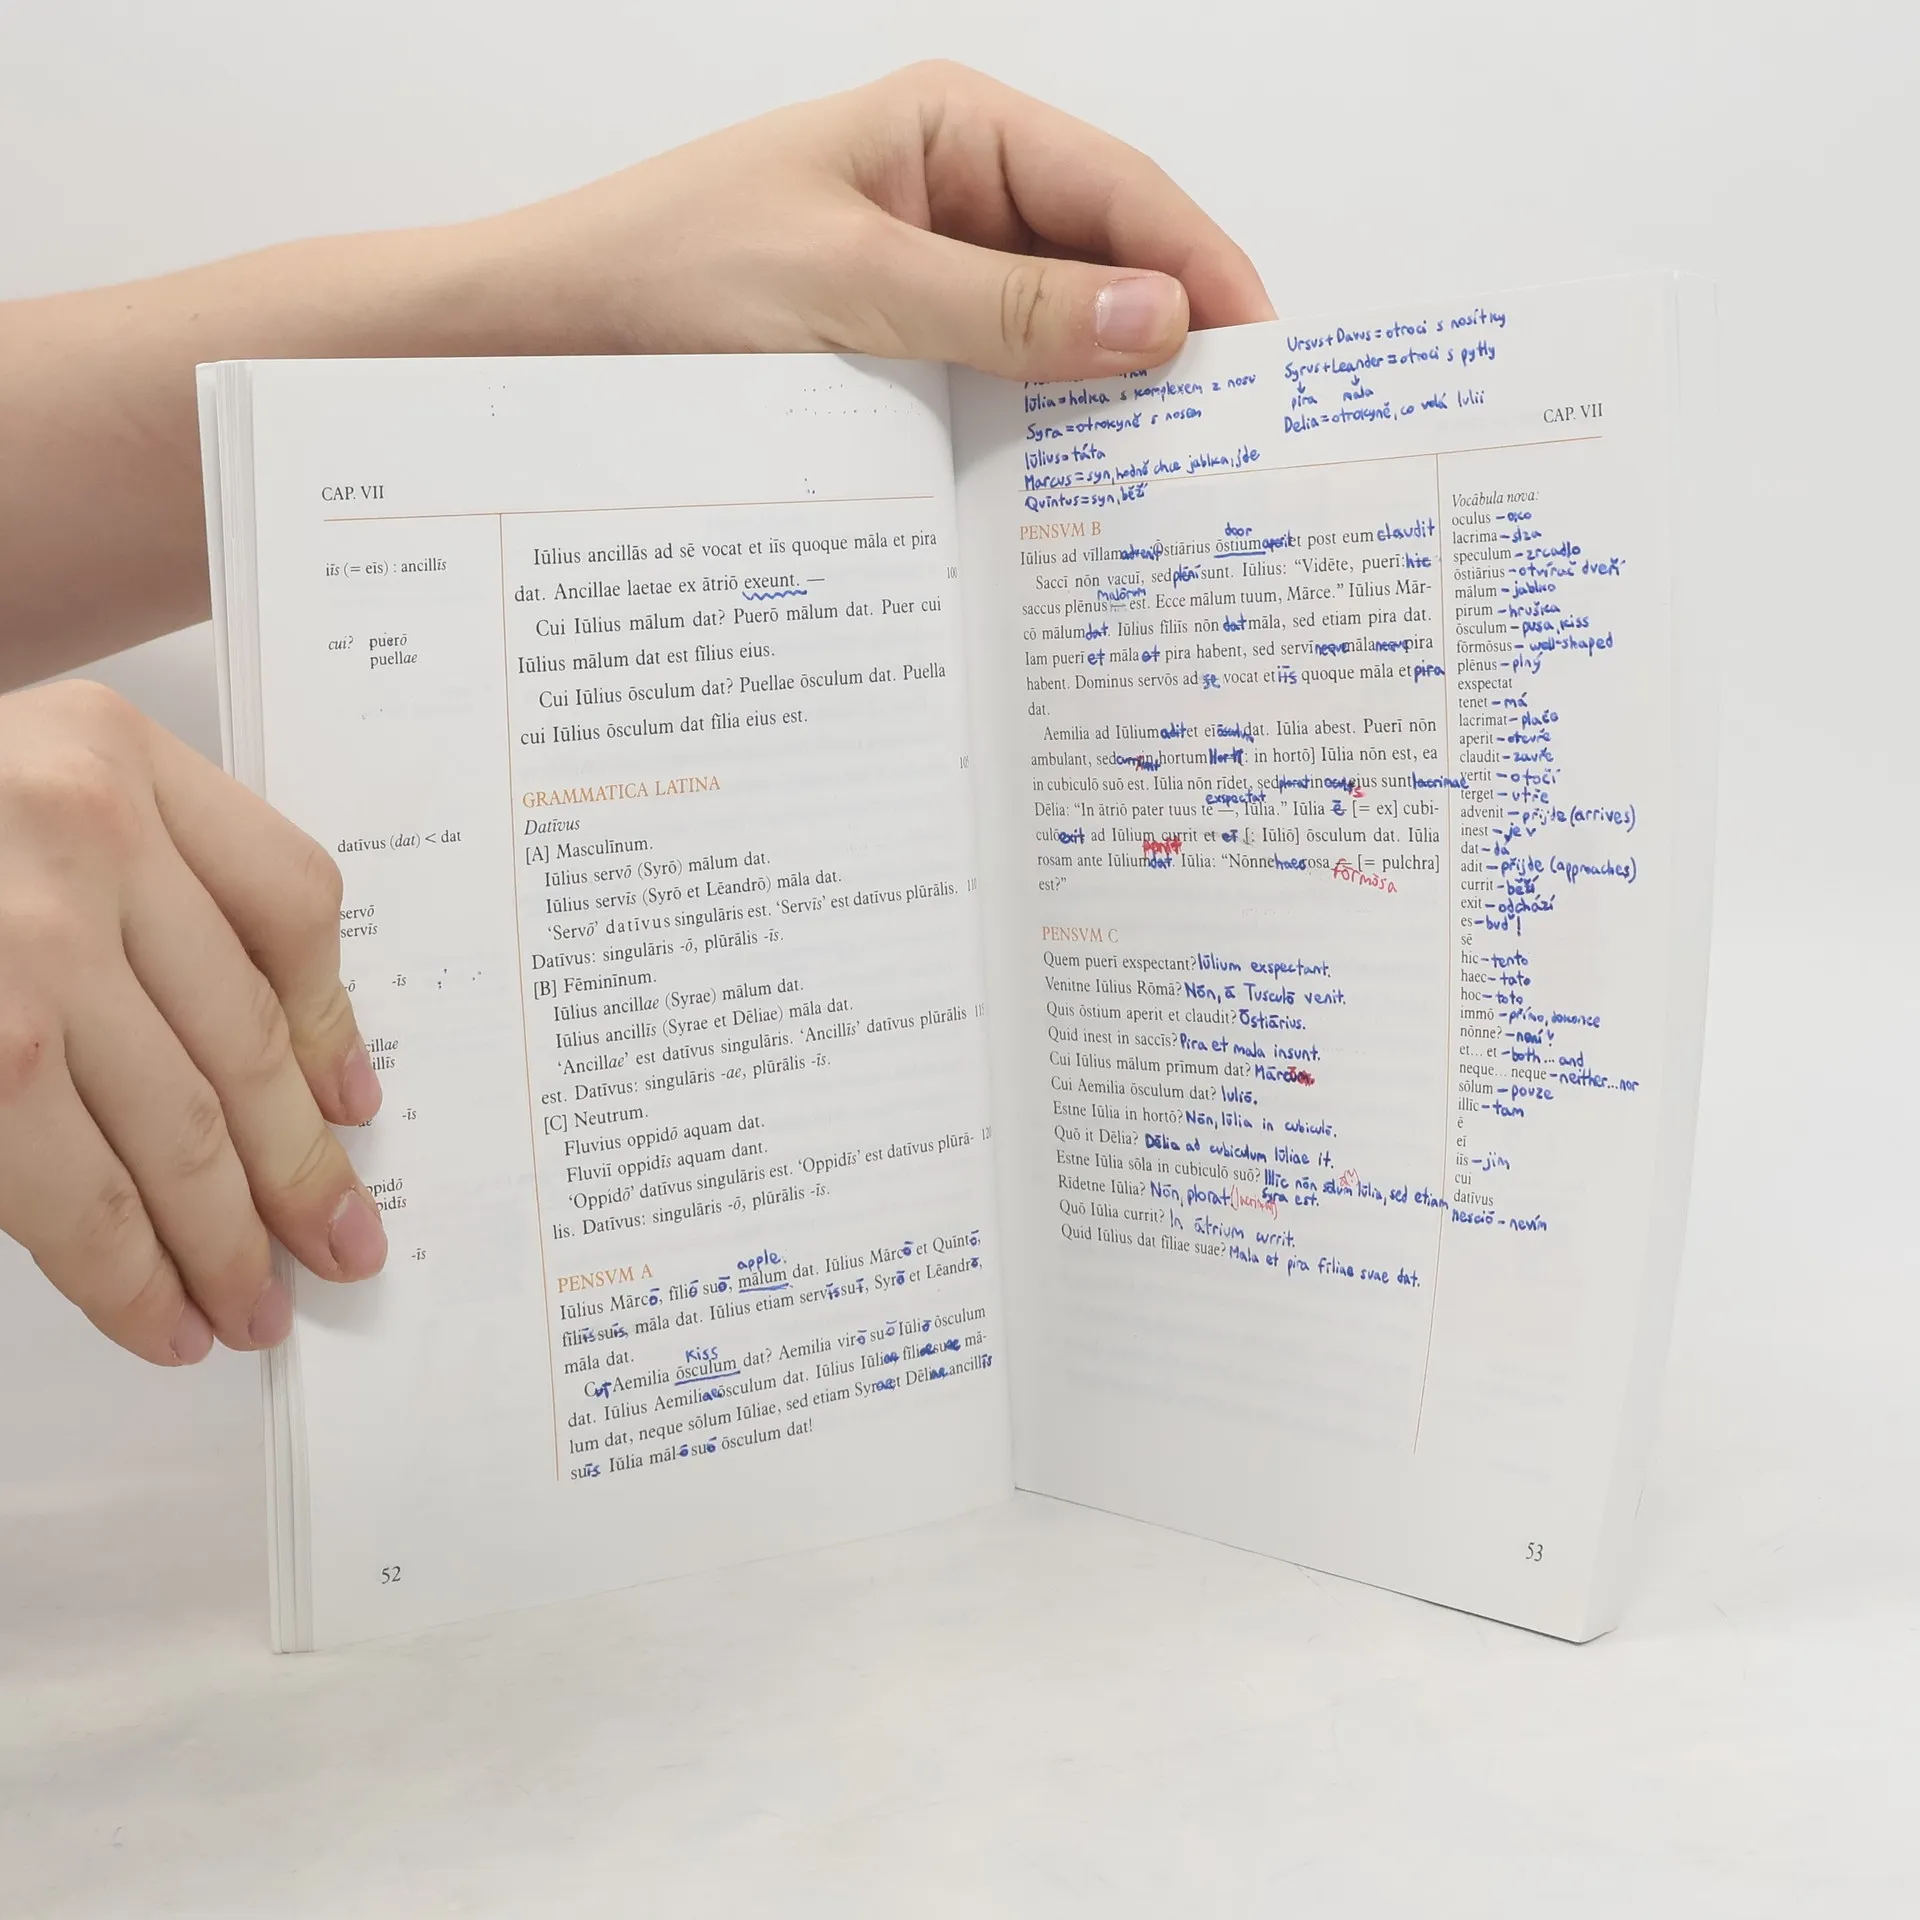 CAP. VII
iīs (= eīs) : ancillīs
cui? puerō
puellae
datīvus (dat) < dat
servō
servīs
-ō -īs
cillae
illīs
ae -īs
oppidō
oppidīs
-īs
Iūlius ancillās ad sē vocat et iīs quoque māla et pira
dat. Ancillae laetae ex ātriō exeunt. — 100
Cui Iūlius mālum dat? Puerō mālum dat. Puer cui
Iūlius mālum dat est fīlius eius.
Cui Iūlius ōsculum dat? Puellae ōsculum dat. Puella
cui Iūlius ōsculum dat fīlia eius est.
105
GRAMMATICA LATINA
Datīvus
[A] Masculīnum.
Iūlius servō (Syrō) mālum dat.
Iūlius servīs (Syrō et Lēandrō) māla dat.
‘Servō’ datīvus singulāris est. ‘Servīs’ est datīvus plūrālis. 110
Datīvus: singulāris -ō, plūrālis -īs.
[B] Fēminīnum.
Iūlius ancillae (Syrae) mālum dat.
Iūlius ancillīs (Syrae et Dēliae) māla dat.
‘Ancillae’ est datīvus singulāris. ‘Ancillīs’ datīvus plūrālis 115
est. Datīvus: singulāris -ae, plūrālis -īs.
[C] Neutrum.
Fluvius oppidō aquam dat.
Fluviī oppidīs aquam dant.
‘Oppidō’ datīvus singulāris est. ‘Oppidīs’ est datīvus plūrā- 120
lis. Datīvus: singulāris -ō, plūrālis -īs.
PENSVM A
apple.
Iūlius Mārcō, fīliō suō, mālum dat. Iūlius Mārcō et Quīntō,
fīliīs suīs, māla dat. Iūlius etiam servīs suī, Syrō et Lēandrō,
māla dat.
kiss
Cui Aemilia ōsculum dat? Aemilia virō suō Iūliō ōsculum
dat. Iūlius Aemiliae ōsculum dat. Iūlius Iūliae fīliae suae mā-
lum dat, neque sōlum Iūliae, sed etiam Syrae et Dēliae ancillīs
suīs. Iūlia mālō suō ōsculum dat!
52
Iūlia = holka s komplexem z nosu
Syra = otrokyně s nosem
Iūlius = táta
Marcus = syn, hodně chce jablka, jde
Quīntus = syn, běží
Ursus + Davus = otroci s nosítky
Syrus + Leander = otroci s pytly
↓ ↓
pira māla
Delia = otrokyně, co volá Iulii
CAP. VII
PENSVM B
door
Iūlius ad vīllam advenit. Ōstiārius ōstium aperit et post eum claudit
Saccī nōn vacuī, sed plēnī sunt. Iūlius: “Vidēte, puerī: hic
malōrum
saccus plēnus — est. Ecce mālum tuum, Mārce.” Iūlius Mār-
cō mālum dat. Iūlius fīliīs nōn dat māla, sed etiam pira dat.
Iam puerī et māla et pira habent, sed servī neque māla neque pira
habent. Dominus servōs ad sē vocat et iīs quoque māla et pira
dat.
Aemilia ad Iūlium adit et eī ōsculum dat. Iūlia abest. Puerī nōn
ambulant, sed currunt in hortum Hortī [: in hortō] Iūlia nōn est, ea
in cubiculō suō est. Iūlia nōn rīdet, sed plorat in oculīs eius sunt lacrimae
exspectat
Dēlia: “In ātriō pater tuus tē —, Iūlia.” Iūlia ē [= ex] cubi-
culō exit ad Iūlium currit et eī [: Iūliō] ōsculum dat. Iūlia
rosam ante Iūlium dat. Iūlia: “Nōnne haec rosa — [= pulchra]
fōrmōsa
est?”
PENSVM C
Quem puerī exspectant? Iūlium exspectant.
Venitne Iūlius Rōmā? Nōn, ā Tusculō venit.
Quis ōstium aperit et claudit? Ōstiārius.
Quid inest in saccīs? Pira et mala insunt.
Cui Iūlius mālum prīmum dat? Mārcō
Cui Aemilia ōsculum dat? Iuliō.
Estne Iūlia in hortō? Nōn, Iūlia in cubiculō.
Quō it Dēlia? Dēlia ad cubiculum Iūliae it.
Estne Iūlia sōla in cubiculō suō? Illīc nōn sōlum Iūlia, sed etiam
Syra est.
Rīdetne Iūlia? Nōn, plorat
Quō Iūlia currit? In ātrium currit.
Quid Iūlius dat fīliae suae? Mala et pira fīliae suae dat.
Vocābula nova:
oculus – oko
lacrima – slza
speculum – zrcadlo
ōstiārius – otvírač dveří
mālum – jablko
pirum – hruška
ōsculum – pusa, kiss
fōrmōsus – well-shaped
plēnus – plný
exspectat
tenet – má
lacrimat – pláče
aperit – otevře
claudit – zavře
vertit – otočí
terget – utře
advenit – přijde (arrives)
inest – je v
dat – dá
adit – přijde (approaches)
currit – běží
exit – odchází
es – buď!
sē
hic – tento
haec – tato
hoc – toto
immō – přímo, dokonce
nōnne? – není?
et... et – both... and
neque... neque – neither...nor
sōlum – pouze
illīc – tam
ē
eī
iīs – jim
cui
datīvus
nesciō – nevím
53